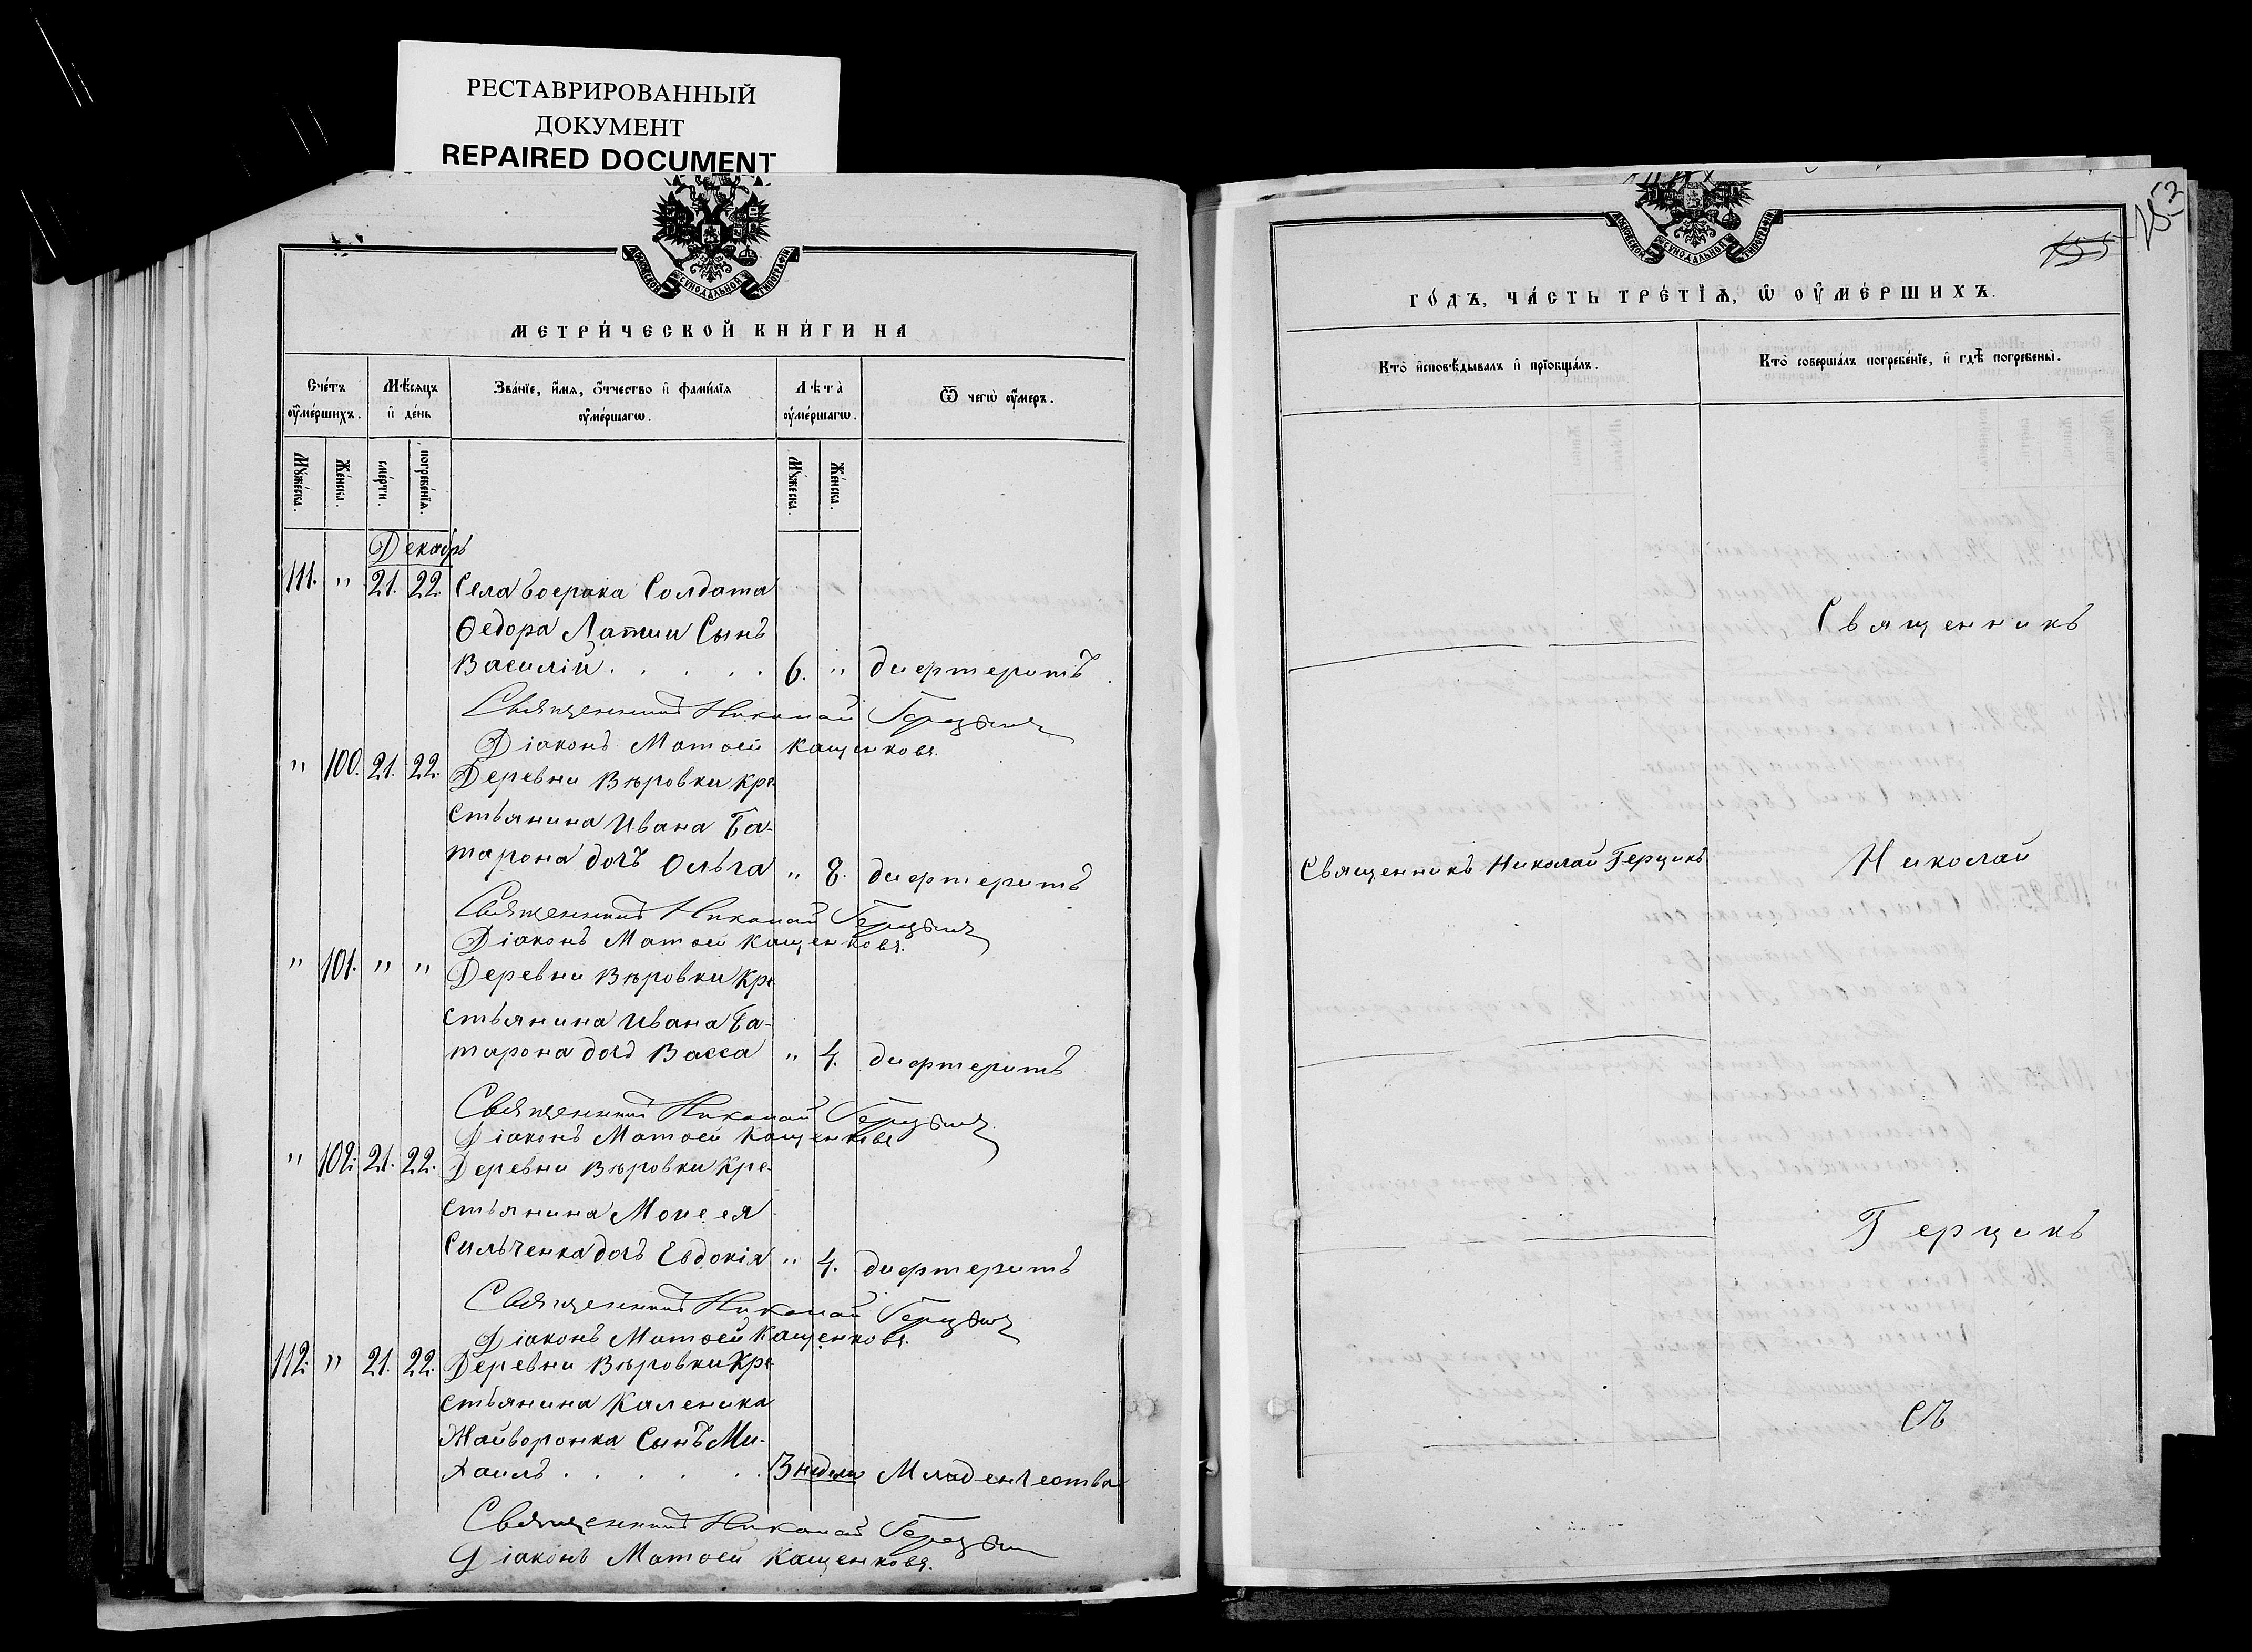 РЕСТАВРИРОВАННЫЙ
ДОКУМЕНТ
REPAIRED DOCUMENT
МОСКОВСКОЙ СѴНОДАЛЬНОЙ ТИПОГРАФІИ
МЕТРИ́ЧЕСКОЙ КНИ́ГИ НА
Счéтъ ᲂу҆ме́ршихъ.
Мѣ́сяцъ и҆ де́нь
Зва́нїе, и҆́мя, ѻ҆́тчество и҆ фами́лїя ᲂу҆ме́ршагѡ.
Лѣ́та ᲂу҆ме́ршагѡ.
Ѿ чегѡ̀ ᲂу҆́меръ.
Мꙋ́жеска.
Же́нска.
сме́рти.
погребе́нїя.
Мꙋ́жеска.
Же́нска.
Декабрь
111. " 21. 22. Села Боерака Солдата
Ѳедора Лапши Сынъ
Василій . . . . . 6. " дифтеритъ
Священникъ Николай Герцыкъ
Діаконъ Матѳей Кащенковъ.
" 100. 21. 22. Деревни Вѣровки Кре-
стьянина Ивана Га-
тарона дочь Ольга " 8. дифтеритъ
Священникъ Николай Герцыкъ
Діаконъ Матѳей Кащенковъ.
" 101. " " Деревни Вѣровки Кре-
стьянина Ивана Га-
тарона дочь Васса " 4. дифтеритъ
Священникъ Николай Герцыкъ
Діаконъ Матѳей Кащенковъ
" 102. 21. 22. Деревни Вѣровки Кре-
стьянина Моисея
Сильченка дочь Евдокія " 4. дифтеритъ
Священникъ Николай Герцыкъ
Діаконъ Матѳей Кащенковъ.
112. " 21. 22. Деревни Вѣровки Кре-
стьянина Каленика
Жайворонка Сынъ Ми-
хаилъ . . . . . . 3 недели Младенчества
Священникъ Николай Герцыкъ
Діаконъ Матѳей Кащенковъ.
252
155
МОСКОВСКОЙ СѴНОДАЛЬНОЙ ТИПОГРАФІИ
ГО́ДЪ, ЧА́СТЬ ТРЕ́ТЇѦ, Ѡ҆ ОУ҆МЕ́РШИХЪ.
Кто̀ и҆сповѣ́дывалъ и҆ прїобща́лъ.
Кто̀ соверша́лъ погребе́нїе, и҆ гдѣ̀ погребены̀.
Священникъ
Священникъ Николай Герцикъ
Николай
Герцикъ
съ